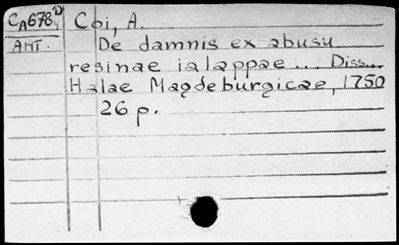 CA678D4 Coi, A.
ANT. De damnis ex abusu
resinae ialappae ... Diss...
Halae Magdeburgicae, 1750
26 p.